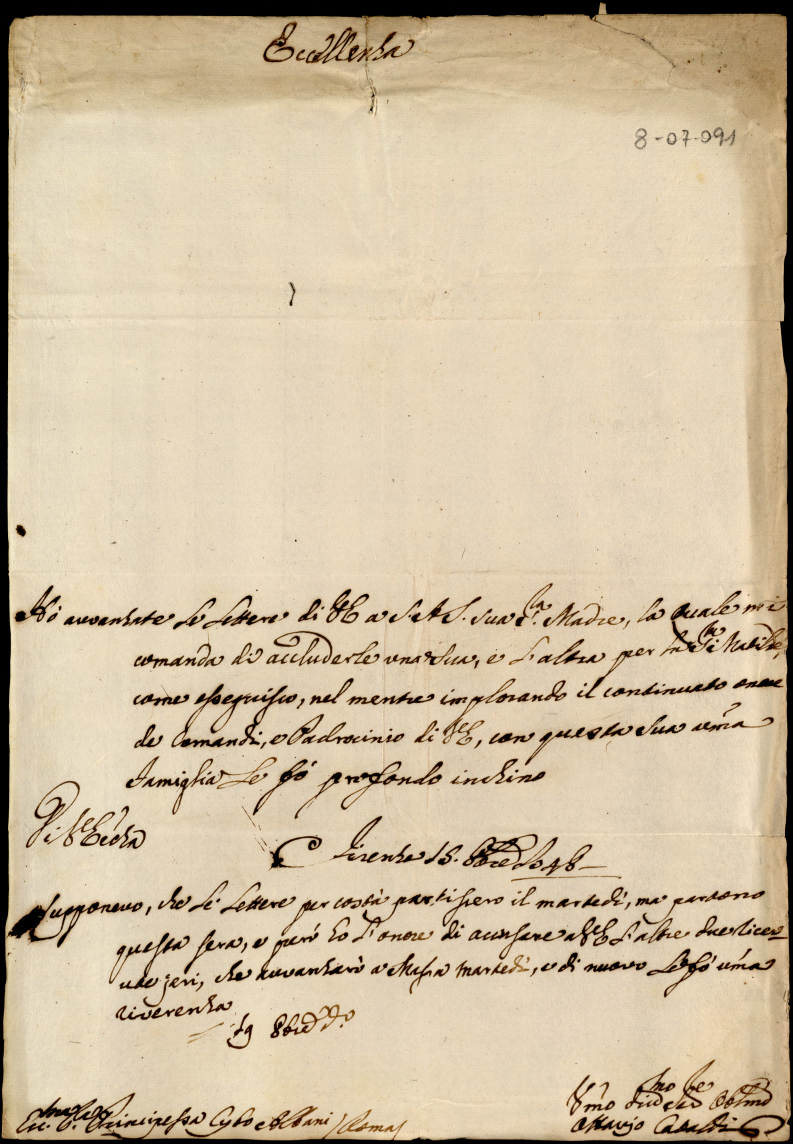 Eccellenza
8-07-091
Hò avvanzate le lettere di VE a S.A.S. sua Sig.ra Madre, la quale mi
comanda di accluderle una sua, e l'altra per
come esseguisco, nel mentre implorando il continuato onore
de comandi, e Padrocinio di VE, con questa sua
famiglia Le fò profondo inchino
Di V Ecc.za
Firenze 15. 8bre 1748
Supponevo, che le lettere per costà partissero il martedì, ma partono
questa sera, e però hò l'onore di accusare a VE l'altre due rice-
vute jeri, che avvanzarò a Massa martedì, e di nuovo Le fò um̃a
riverenza
19 8bre d.o
Ecc.ma Sig.ra Principessa Cybo e Albani /Roma/
Um̃o
Ottavio